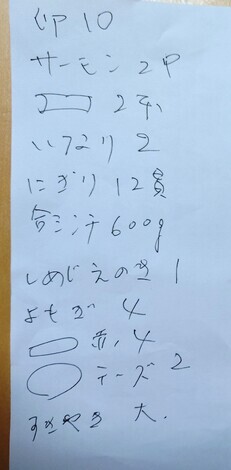 10
サーモン 2P
2本
いなり 2
にぎり 12員
合ミンチ 600g
しめじえのき 1
よもぎ 4
4
チーズ 2
すきやき 大.